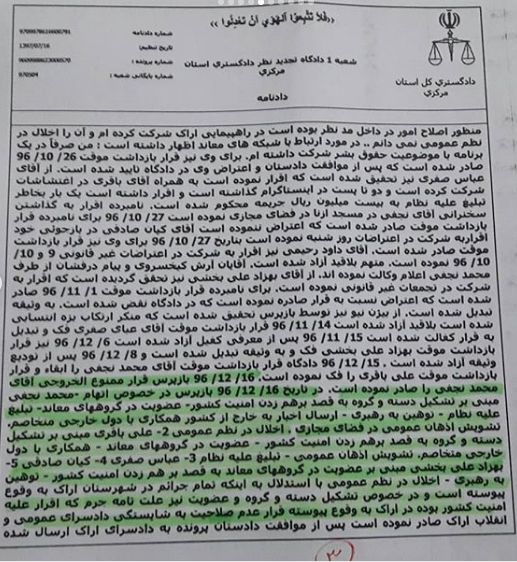 «فلا تتبعوا الهوی ان تعدلوا»
شماره دادنامه :
تاریخ تنظیم: 1397/07/16
شماره پرونده :
شماره بایگانی شعبه : 970504
شعبه 1 دادگاه تجدید نظر دادگستری استان
مرکزی
دادگستری کل استان
مرکزی
دادنامه
منظور اصلاح امور در داخل مد نظر بوده است در راهپیمایی اراک شرکت کرده ام و آن را اخلال در
نظم عمومی نمی دانم .. در مورد ارتباط با شبکه های معاند اظهار داشته است : من صرفاً در یک
برنامه با موضوعیت حقوق بشر شرکت داشته ام. برای وی نیز قرار بازداشت موقت 26/ 10/ 96
صادر شده است که پس از موافقت دادستان و اعتراض وی در دادگاه تایید شده است. از آقای
عباس صفری نیز تحقیق شده است که اقرار نموده است به همراه آقای باقری در اغتشاشات
شرکت کرده است و دو تا پست در اینستاگرام گذاشته است و اقرار داشته است یک بار بخاطر
تبلیغ علیه نظام به بیست میلیون ریال جریمه محکوم شده است. نامبرده اقرار به گذاشتن
سخنرانی آقای نجفی در مسجد در فضای مجازی نموده است 27/ 10/ 96 برای نامبرده قرار
بازداشت موقت صادر شده است که اعتراض ننموده است آقای کیان صادقی در بازجوئی خود
اقراربه شرکت در اعتراضات روز شنبه نموده است بتاریخ 27/ 10/ 96 برای وی نیز قرار بازداشت
موقت صادر شده است. آقای داود رحیمی نیز اقرار به شرکت در اعتراضات غیر قانونی 9 و 10/
10/ 96 نموده است. متهم بلاقید آزاد شده است. آقایان آرش کیخسروی و پیام درفشان از طرف
محمد نجفی اعلام وکالت نموده اند. از آقای بهزاد علی بخشی نیز تحقیق گردیده است که اقرار به
شرکت در تجمعات غیر قانونی نموده است. برای نامبرده قرار بازداشت موقت 1/ 11/ 96 صادر
شده است که اعتراض نسبت به قرار صادره نموده است که در دادگاه نقض شده است. به وثیقه
تبدیل شده است. از بیژن نیو نیز توسط بازپرس تحقیق شده است که منکر ارتکاب بزه انتسابی
شده است بلاقید آزاد شده است 14/ 11/ 96 قرار بازداشت موقت آقای عباس صفری فک و تبدیل
به قرار کفالت شده است 15/ 11/ 96 پس از معرفی کفیل آزاد شده است 6/ 12/ 96 نیز قرار
بازداشت موقت بهزاد علی بخشی فک و به وثیقه تبدیل شده است و 8/ 12/ 96 پس از تودیع
وثیقه آزاد شده است . 15/ 12/ 96 دادگاه قرار بازداشت موقت آقای محمد نجفی را ابقاء و قرار
بازداشت موقت علی باقری را فک نموده است. 16/ 12/ 96 بازپرس قرار ممنوع الخروجی آقای
محمد نجفی را صادر نموده است. در تاریخ 16/ 12/ 96 بازپرس در خصوص اتهام -محمد نجفی
مبنی بر تشکیل دسته و گروه به قصد برهم زدن امنیت کشور- عضویت در گروههای معاند- تبلیغ
علیه نظام - توهین به رهبری - ارسال اخبار به خارج از کشور همکاری با دول خارجی متخاصم،
تشویش اذهان عمومی در فضای مجازی . اخلال در نظم عمومی 2- علی باقری مبنی بر تشکیل
دسته و گروه به قصد برهم زدن امنیت کشور - عضویت در گروههای معاند - همکاری با دول
خارجی متخاصم. تشویش اذهان عمومی - تبلیغ علیه نظام 3- عباس صفری 4- کیان صادقی 5-
بهزاد علی بخشی مبنی بر عضویت در گروههای معاند به قصد بر هم زدن امنیت کشور - توهین
به رهبری - اخلال در نظم عمومی با استدلال به اینکه تمام جرائم در شهرستان اراک به وقوع
پیوسته است و در خصوص تشکیل دسته و گروه و عضویت نیز علت تامه جرم که اقرار علیه
امنیت کشور بوده در اراک به وقوع پیوسته قرار عدم صلاحیت به شایستگی دادسرای عمومی و
انقلاب اراک صادر نموده است پس از موافقت دادستان پرونده به دادسرای اراک ارسال شده